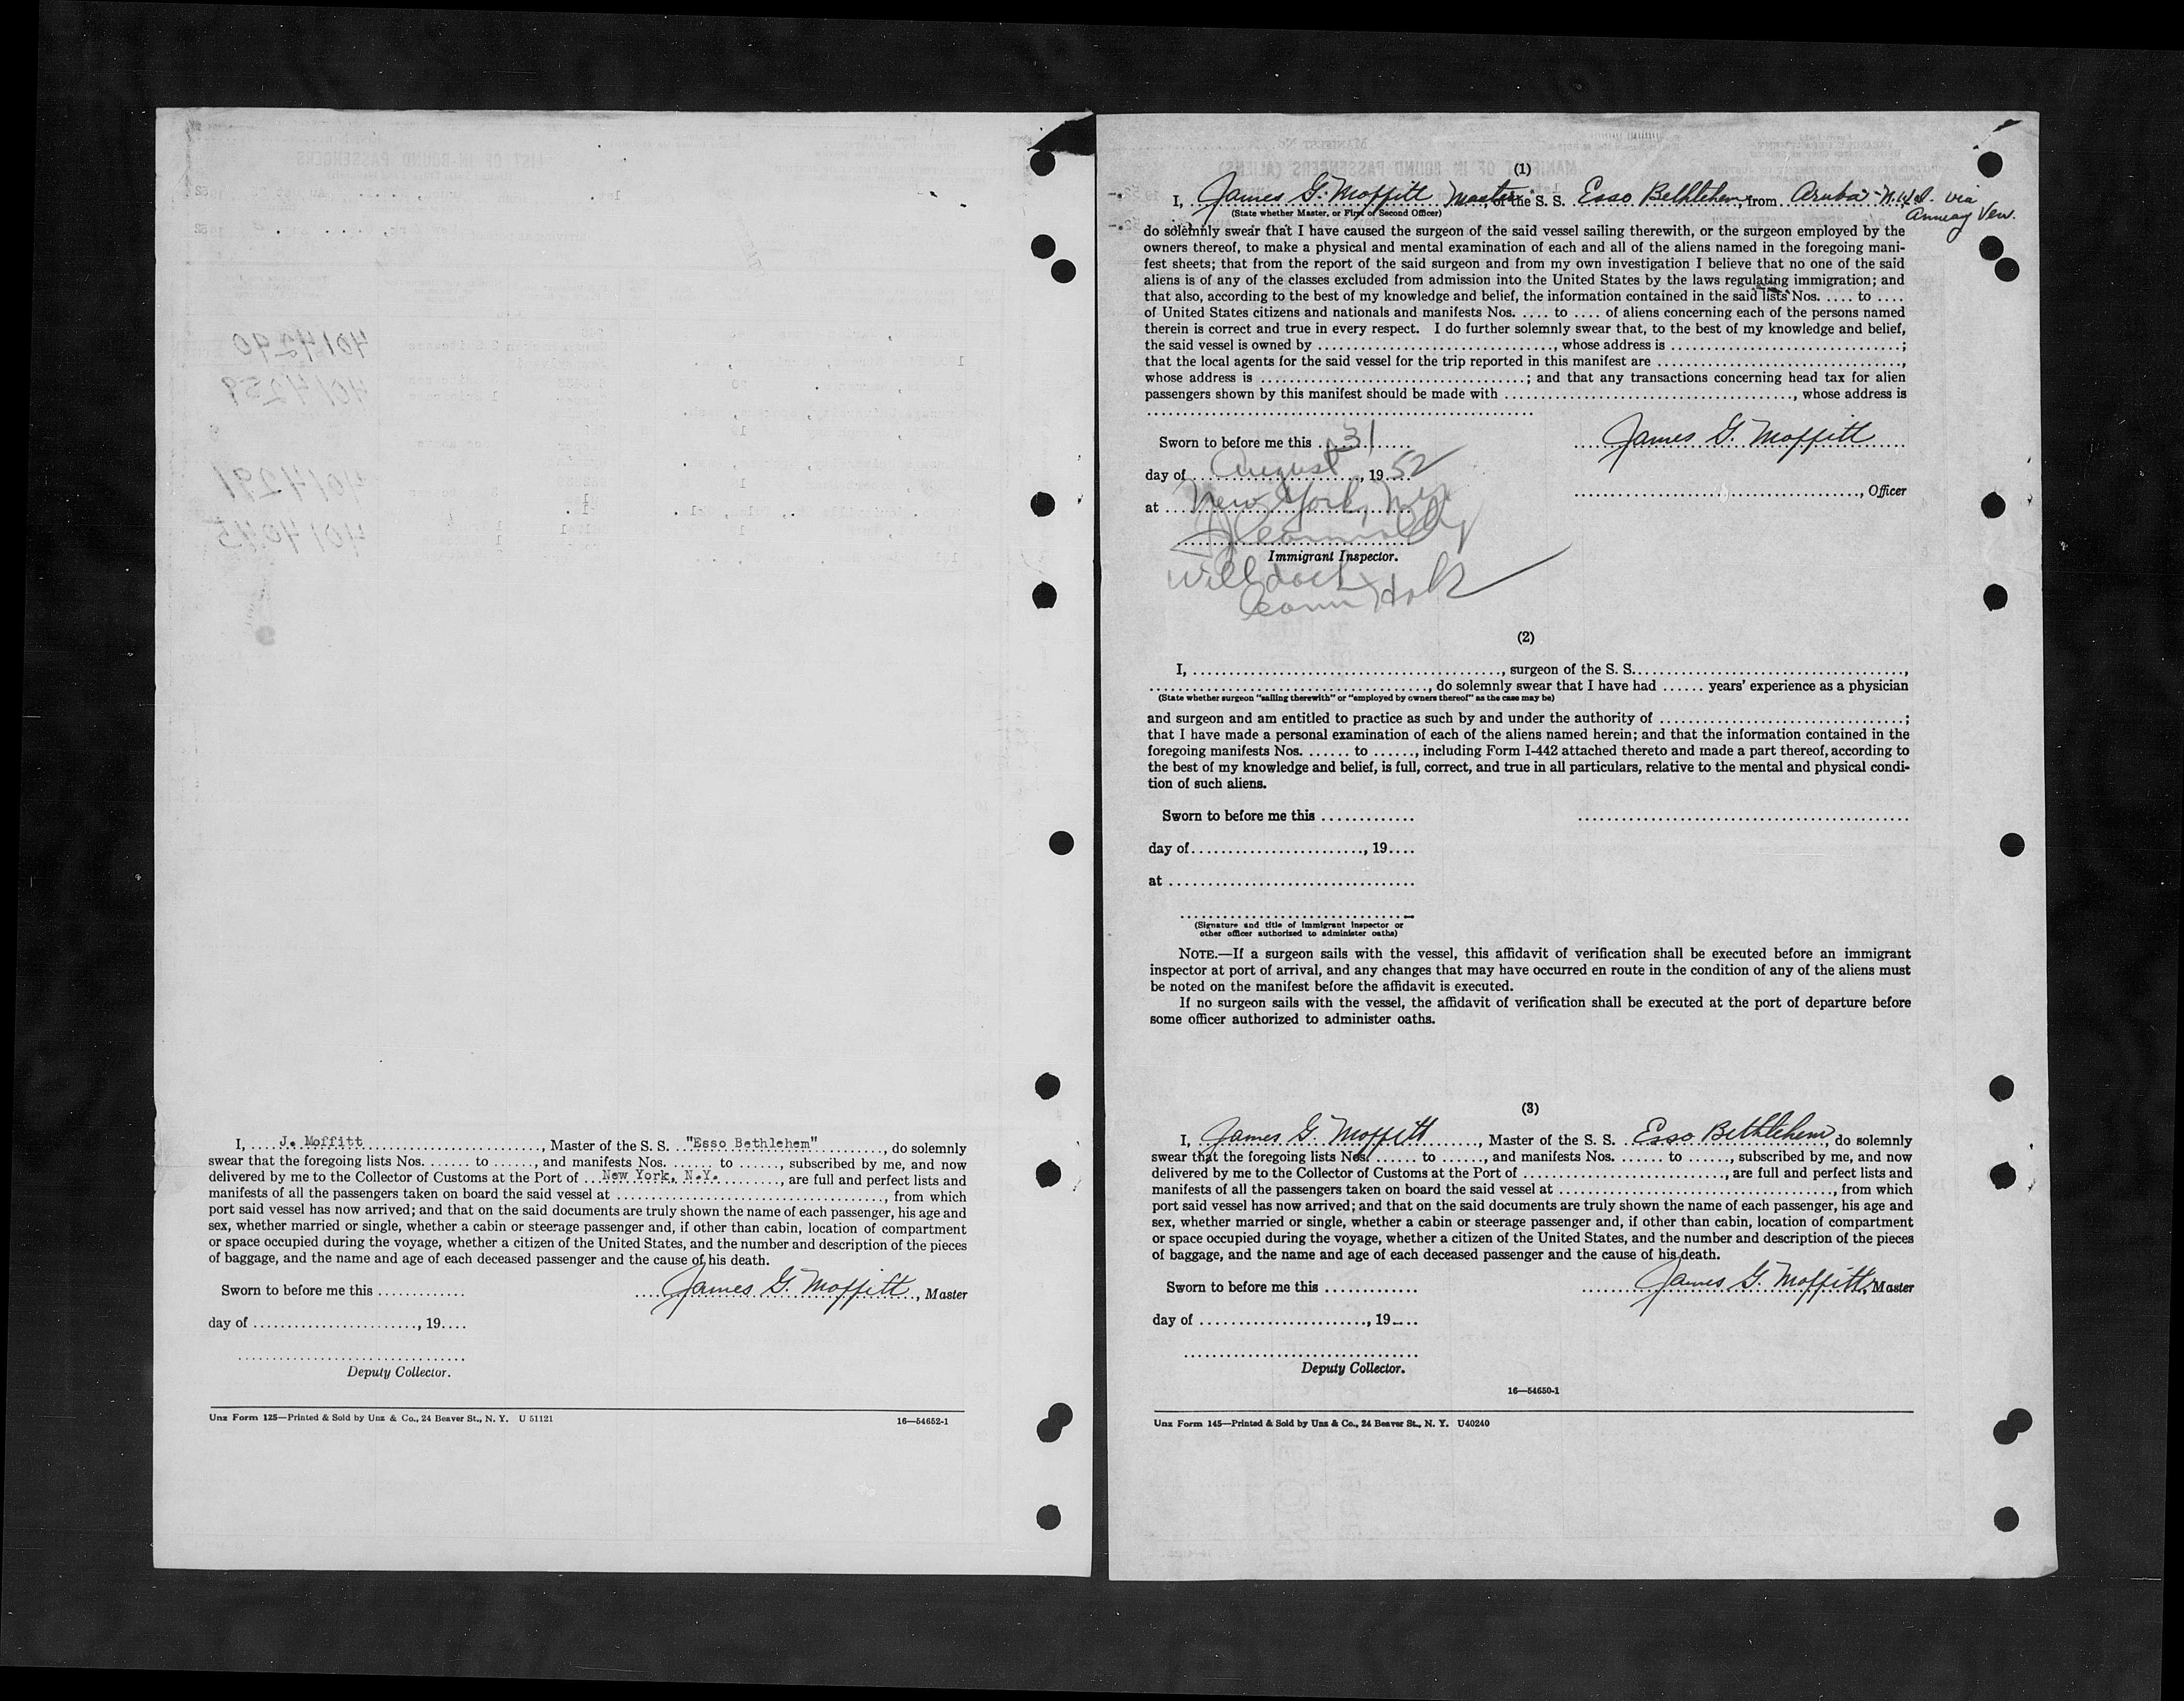 I, ....J. Moffitt............................, Master of the S. S. .."Esso Bethlehem"..........., do solemnly
swear that the foregoing lists Nos. ....... to ......, and manifests Nos. ....... to ......, subscribed by me, and now
delivered by me to the Collector of Customs at the Port of ...New York, N.Y. .........., are full and perfect lists and
manifests of all the passengers taken on board the said vessel at ........................................, from which
port said vessel has now arrived; and that on the said documents are truly shown the name of each passenger, his age and
sex, whether married or single, whether a cabin or steerage passenger and, if other than cabin, location of compartment
or space occupied during the voyage, whether a citizen of the United States, and the number and description of the pieces
of baggage, and the name and age of each deceased passenger and the cause of his death.
Sworn to before me this .............
James G. Moffitt, Master
day of ........................, 19....
Deputy Collector.
Unz Form 125—Printed & Sold by Unz & Co., 24 Beaver St., N. Y. U 51121
16—54652-1
(1)
I, James G. Moffitt Master, of the S. S. Esso Bethlehem, from Aruba - N.W.I. via
(State whether Master, or First or Second Officer)
do solemnly swear that I have caused the surgeon of the said vessel sailing therewith, or the surgeon employed by the
owners thereof, to make a physical and mental examination of each and all of the aliens named in the foregoing mani-
fest sheets; that from the report of the said surgeon and from my own investigation I believe that no one of the said
aliens is of any of the classes excluded from admission into the United States by the laws regulating immigration; and
that also, according to the best of my knowledge and belief, the information contained in the said lists Nos. .... to ....
of United States citizens and nationals and manifests Nos. .... to .... of aliens concerning each of the persons named
therein is correct and true in every respect. I do further solemnly swear that, to the best of my knowledge and belief,
the said vessel is owned by ..................................., whose address is ..................................;
that the local agents for the said vessel for the trip reported in this manifest are ....................................,
whose address is .......................................; and that any transactions concerning head tax for alien
passengers shown by this manifest should be made with ..........................................., whose address is
Sworn to before me this ...31.....
James G. Moffitt
day of August, 1952
......................................., Officer
at New York, N.Y.
Immigrant Inspector.
(2)
I, .............................................., surgeon of the S. S. .......................................,
........................................., do solemnly swear that I have had ...... years' experience as a physician
(State whether surgeon "sailing therewith" or "employed by owners thereof" as the case may be)
and surgeon and am entitled to practice as such by and under the authority of ....................................;
that I have made a personal examination of each of the aliens named herein; and that the information contained in the
foregoing manifests Nos. ...... to ......, including Form I-442 attached thereto and made a part thereof, according to
the best of my knowledge and belief, is full, correct, and true in all particulars, relative to the mental and physical condi-
tion of such aliens.
Sworn to before me this .............
day of........................., 19....
at ....................................
(Signature and title of immigrant inspector or
other officer authorized to administer oaths)
NOTE.—If a surgeon sails with the vessel, this affidavit of verification shall be executed before an immigrant
inspector at port of arrival, and any changes that may have occurred en route in the condition of any of the aliens must
be noted on the manifest before the affidavit is executed.
If no surgeon sails with the vessel, the affidavit of verification shall be executed at the port of departure before
some officer authorized to administer oaths.
(3)
I, James G. Moffitt, Master of the S. S. Esso Bethlehem, do solemnly
swear that the foregoing lists Nos. ...... to ......, and manifests Nos. ...... to ......, subscribed by me, and now
delivered by me to the Collector of Customs at the Port of .............................., are full and perfect lists and
manifests of all the passengers taken on board the said vessel at ........................................, from which
port said vessel has now arrived; and that on the said documents are truly shown the name of each passenger, his age and
sex, whether married or single, whether a cabin or steerage passenger and, if other than cabin, location of compartment
or space occupied during the voyage, whether a citizen of the United States, and the number and description of the pieces
of baggage, and the name and age of each deceased passenger and the cause of his death.
Sworn to before me this .............
James G. Moffitt, Master
day of ........................, 19....
Deputy Collector.
16—54650-1
Unz Form 145—Printed & Sold by Unz & Co., 24 Beaver St., N. Y. U40240